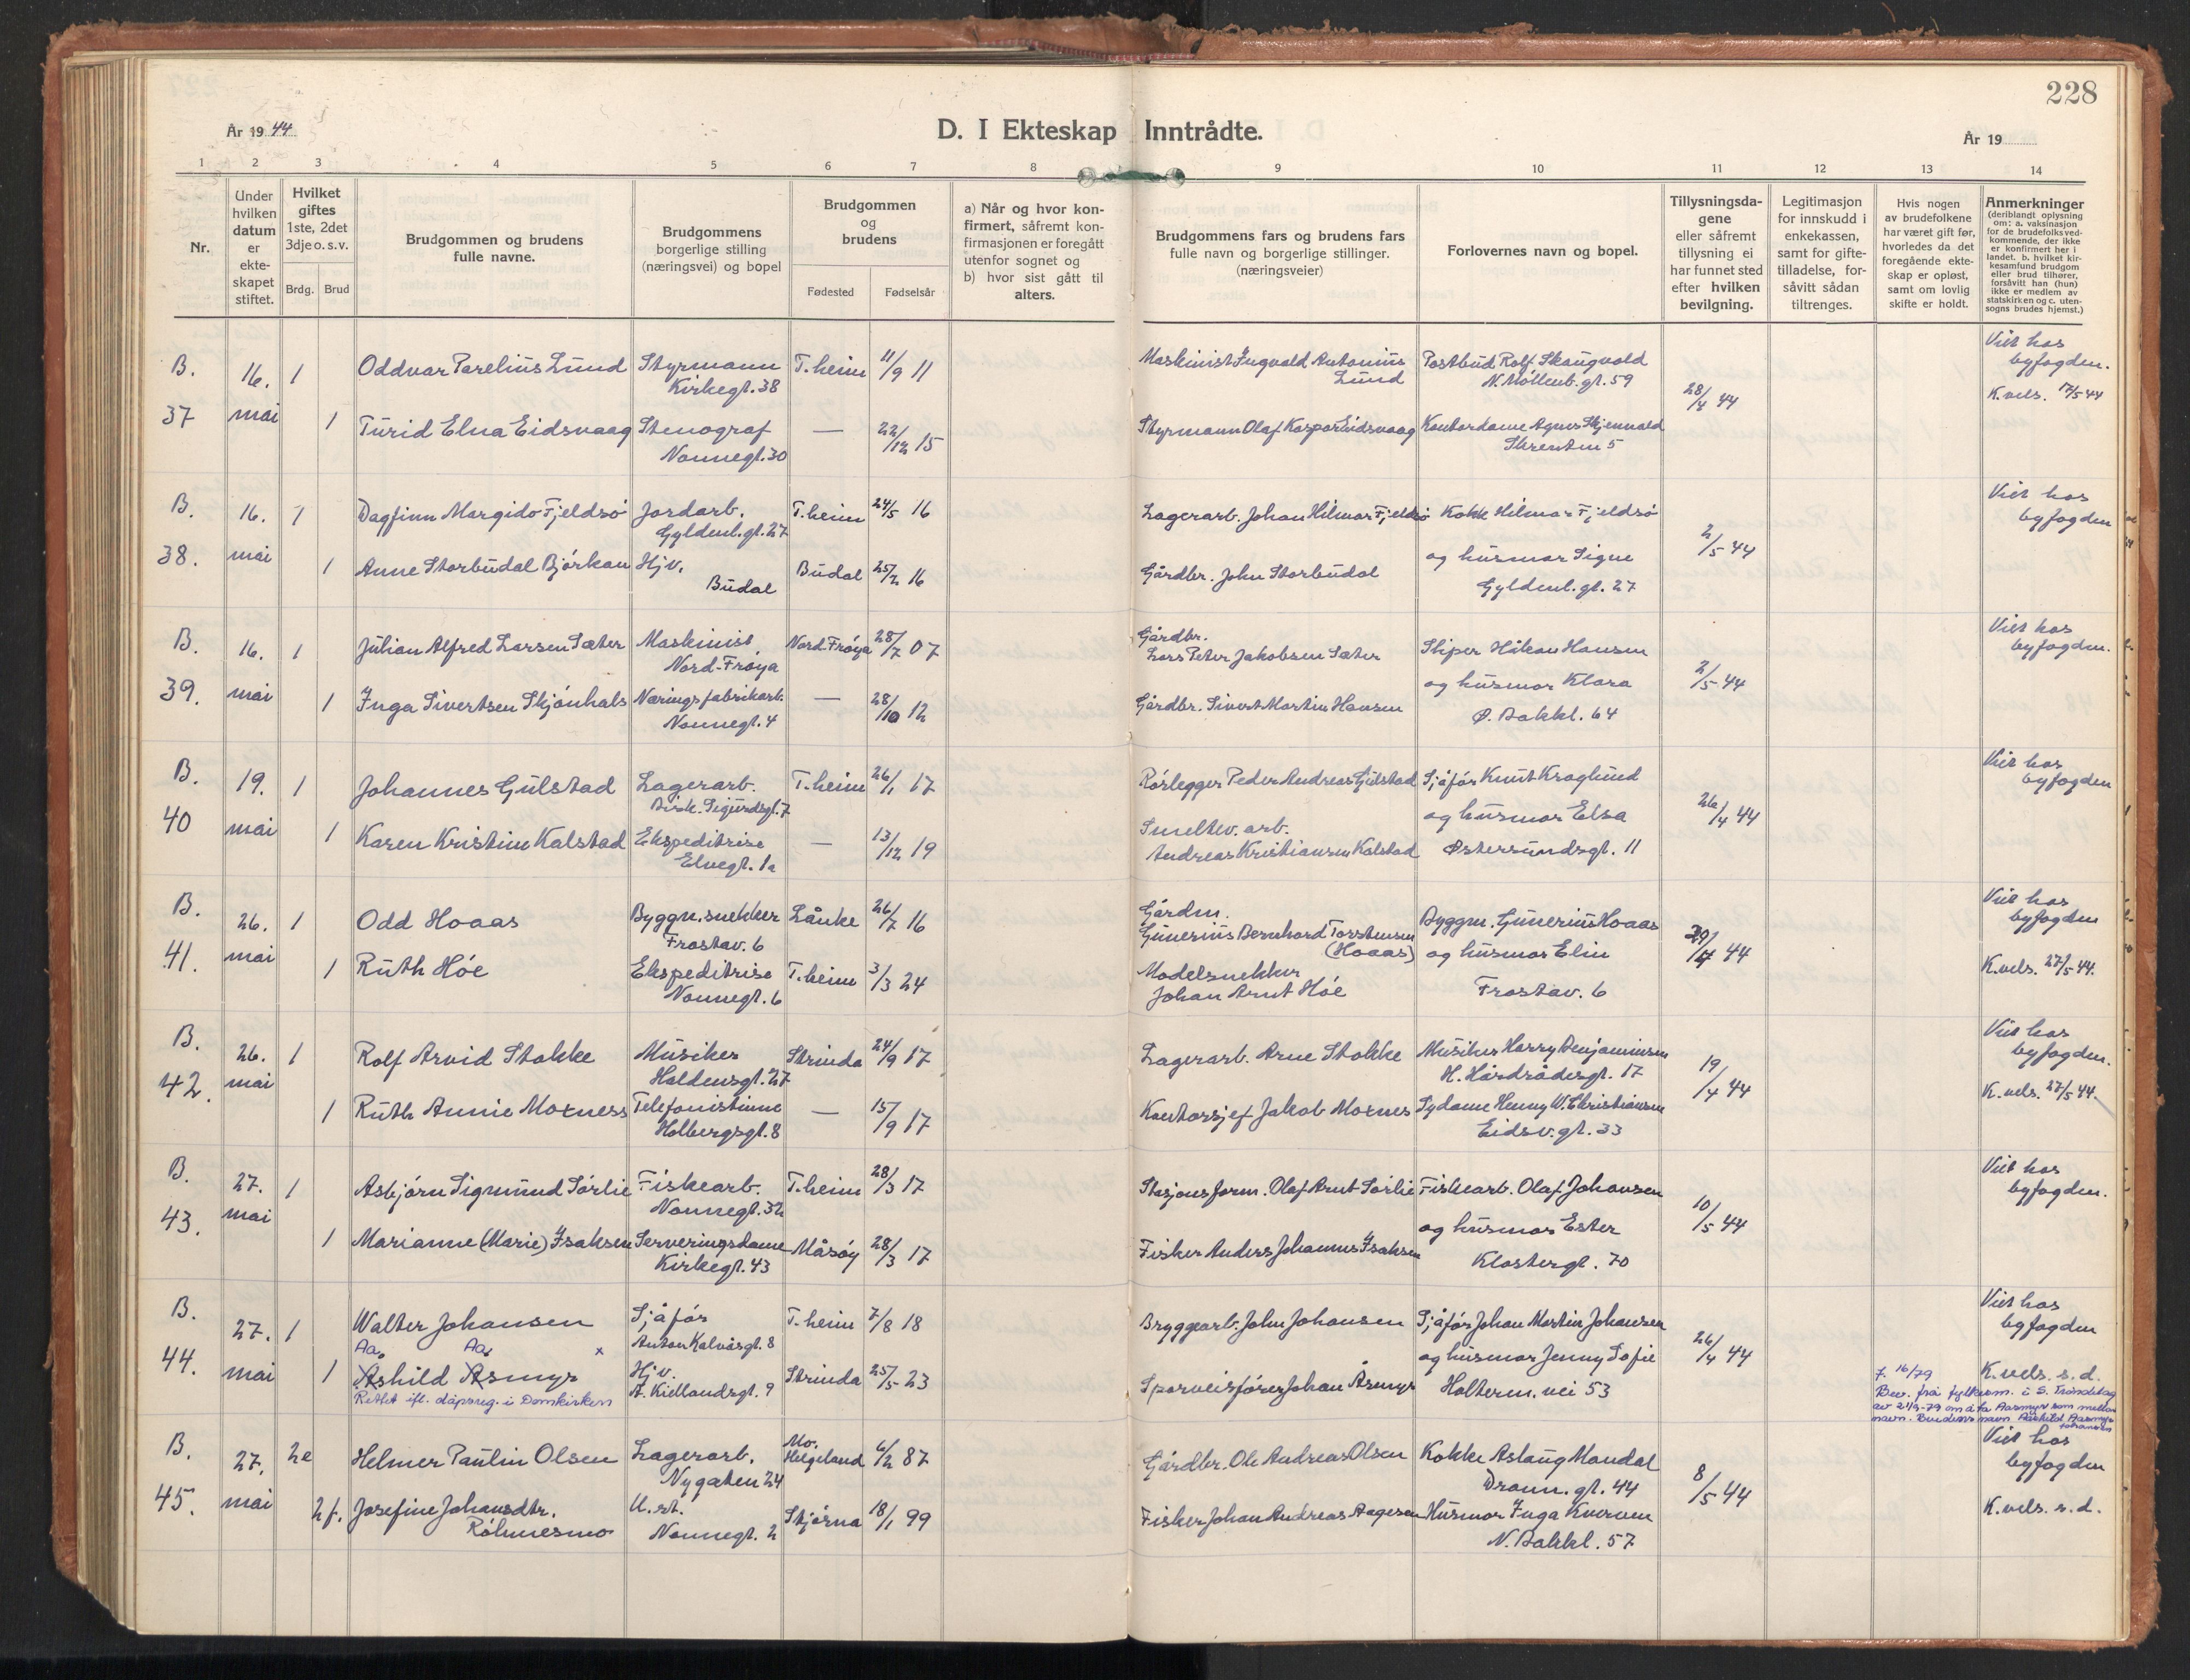 228
År 19 44
D. I Ekteskap Inntrådte.
År 19
1 2 3 4 5 6 7 8 9 10 11 12 13 14
Nr.
Under hvilken datum er ekte-skapet stiftet.
Hvilket giftes 1ste, 2det 3dje o. s. v.
Brdg. Brud
Brudgommen og brudens fulle navne.
Brudgommens borgerlige stilling (næringsvei) og bopel
Brudgommen og brudens
Fødested Fødselsår
a) Når og hvor kon-firmert, såfremt kon-firmasjonen er foregått utenfor sognet og b) hvor sist gått til alters.
Brudgommens fars og brudens fars fulle navn og borgerlige stillinger. (næringsveier)
Forlovernes navn og bopel.
Tillysningsda-gene eller såfremt tillysning ei har funnet sted efter hvilken bevilgning.
Legitimasjon for innskudd i enkekassen, samt for gifte-tilladelse, for-såvitt sådan tiltrenges.
Hvis nogen av brudefolkene har været gift før, hvorledes da det foregående ekte-skap er opløst, samt om lovlig skifte er holdt.
Anmerkninger (deriblandt oplysning om: a. vaksinasjon for de brudefolks ved-kommende, der ikke er konfirmert her i landet. b. hvilket kir-kesamfund brudgom eller brud tilhører, forsåvitt han (hun) ikke er medlem av statskirken og c. uten-sogns brudes hjemst.)
B. 37 16. mai 1 Oddvar Parelius Lund Styrmann Kirkegt. 38 T.heim 11/9 11 Maskinist Ingvald Antonius Lund Postbud Rolf Skaugvold N. Möllenb. gt. 59 28/4 44 Viet hos byfogden. K.vels. 17/5 44
1 Turid Elna Eidsvaag Stenograf Nonnegt. 30 — 22/12 15 Styrmann Olaf Kaspar Eidsvaag Kontordame Agnes Skjemvold 5
B. 38. 16. mai 1 Dagfinn Margido Fjeldsö Jordarb. Gyldenl. gt. 27 T.heim 24/5 16 Lagerarb. Johan Hilmar Fjeldsö Kokk Hilmar Fjeldsö 2/5 44 Viet hos byfogden
1 Anne Storbudal Björkan Hjv. Budal Budal 25/2 16 Gårdbr. John Storbudal og husmor Signe Gyldenl. gt. 27
B. 39. 16. mai 1 Julian Alfred Larsen Sæter Maskinist Nord-Fröya Nord-Fröya 28/7 07 Gårdbr. Lars Peter Jakobsen Sæter Skiper Håkon Hansen 2/5 44 Viet hos byfogden.
1 Inga Sivertsen Skjönhals Næringsfabrikarb. Nonnegt. 4 — 28/10 12 Gårdbr. Sivert Martin Hansen og husmor Klara Ø. Bakkl. 64
B. 40 19. mai 1 Johannes Gulstad Lagerarb. Bisk. Sigurdsgt. 7 T.heim 26/1 17 Rörlegger Peder Andreas Gulstad Sjåför Knut Kraglund 26/4 44 Viet hos byfogden
1 Karen Kristine Kalstad Ekspeditrise Elvegt. 1a — 13/12 19 Smeltev. arb. Andreas Kristiansen Kalstad og husmor Elsa Østersundsgt. 11
B. 41. 26. mai 1 Odd Hoaas Byggn.snekker Frostav. 6 Lånke 26/7 16 Gårdm. Gunerius Bernhard Torstensen (Hoaas) Byggm. Gunerius Hoaas 29/4 44 Viet hos byfogden K.vels. 27/5 44.
1 Ruth Höe Ekspeditrise Nonnegt. 6 T.heim 3/3 24 Modelsnekker Johan Arnt Höe og husmor Elin Frostav. 6
B. 42. 26. mai 1 Rolf Arvid Stokke Musiker Haldensgt. 27 Strinda 24/9 17 Lagerarb. Arne Stokke Musiker Harry Benjaminsen H. Hårdrådesgt. 17 19/4 44 Viet hos byfogden. K.vels. 27/5 44.
1 Ruth Annie Moxness Telefonistinne Holbergsgt. 8 — 15/9 17 Kontorsjef Jakob Moxnes Sydame Henny W. Christiansen Eidsv. gt. 33
B. 43. 27. mai 1 Asbjörn Sigmund Sörlie Fiskearb. Nonnegt. 32 T.heim 28/3 17 Stasjonsform. Olaf Arnt Sörlie Fiskearb. Olaf Johansen 10/5 44 Viet hos byfogden.
1 Marianne (Marie) Isaksen Serveringsdame Kirkegt. 43 Måsöy 28/3 17 Fisker Anders Johannes Isaksen og husmor Ester Klostergt. 70
B. 44. 27. mai 1 Walter Johansen Sjåför Anton Kalvåsgt. 8 T.heim 7/8 18 Bryggearb. John Johansen Sjåför Johan Martin Johansen 26/4 44 Viet hos byfogden K.vels. s. d.
Aa. Aa. x
1 Åshild Åsmyr Hjv. A. Kiellandsgt. 9 Strinda 25/5 23 Sporveisfører Johan Åsmyr og husmor Jenny Sofie Holterm. vei 53
Rettet ifl. dåpsreg. i Domkirken
J. 16/79 Bev. frå fylkesm. i S. Trøndelag av 21/9-79 om å ta Aasmyr som mellom navn. Brudens navn Aashild Aasmyr Johansen
B. 45. 27. mai 2e Helmer Paulin Olsen Lagerarb. Nygaten 24 Mo. Helgeland 6/2 87 Gårdbr. Ole Andreas Olsen Kokke Aslaug Mandal Dronn. gt. 44 8/5 44 Viet hos byfogden K.vels. s. d.
2 f. Josefine Johansdtr. Röhmesmo U. st. Nonnegt. 2 Stjørna 18/1 99 Fisker Johan Andreas Aagesen Husmor Inga Kverven N. Bakkl. 57